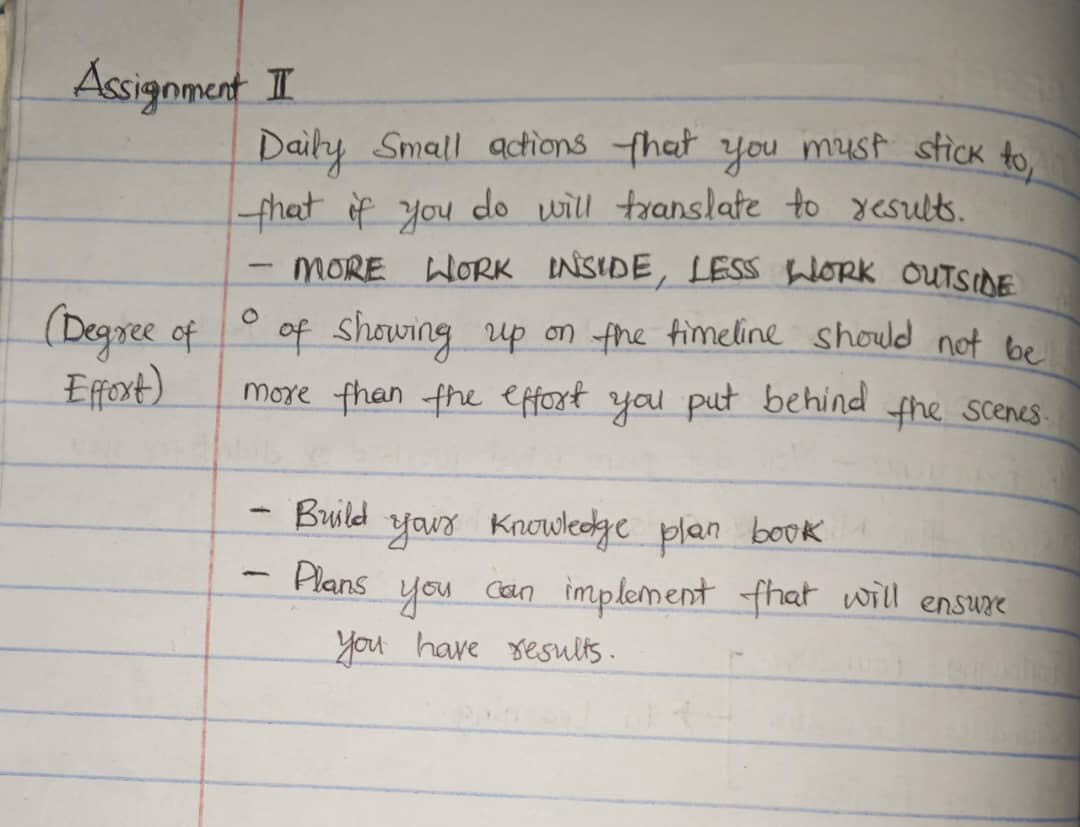 Assignment II
Daily Small actions that you must stick to,
that if you do will translate to results.
- MORE WORK INSIDE, LESS WORK OUTSIDE
(Degree of ° of showing up on the timeline should not be
Effort) more than the effort you put behind the scenes.
- Build your knowledge plan book
- Plans you can implement that will ensure
you have results.